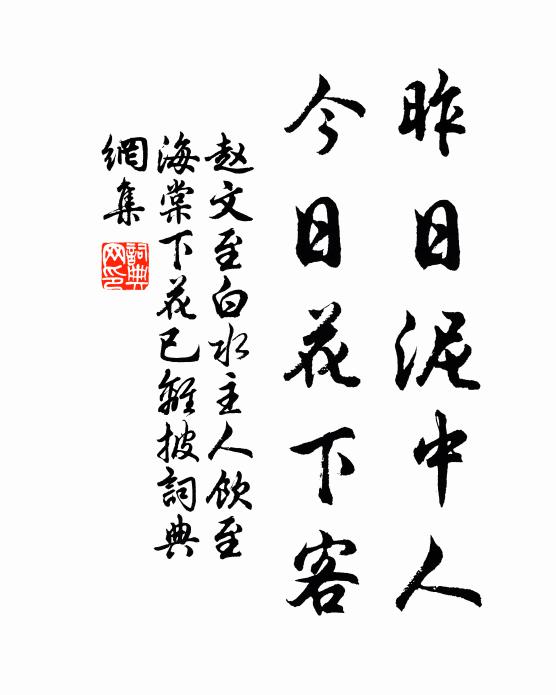 昨日泥中人
今日花下客
赵文至白水主人饮至
海棠下花已離披詞典
網集
詞典網印